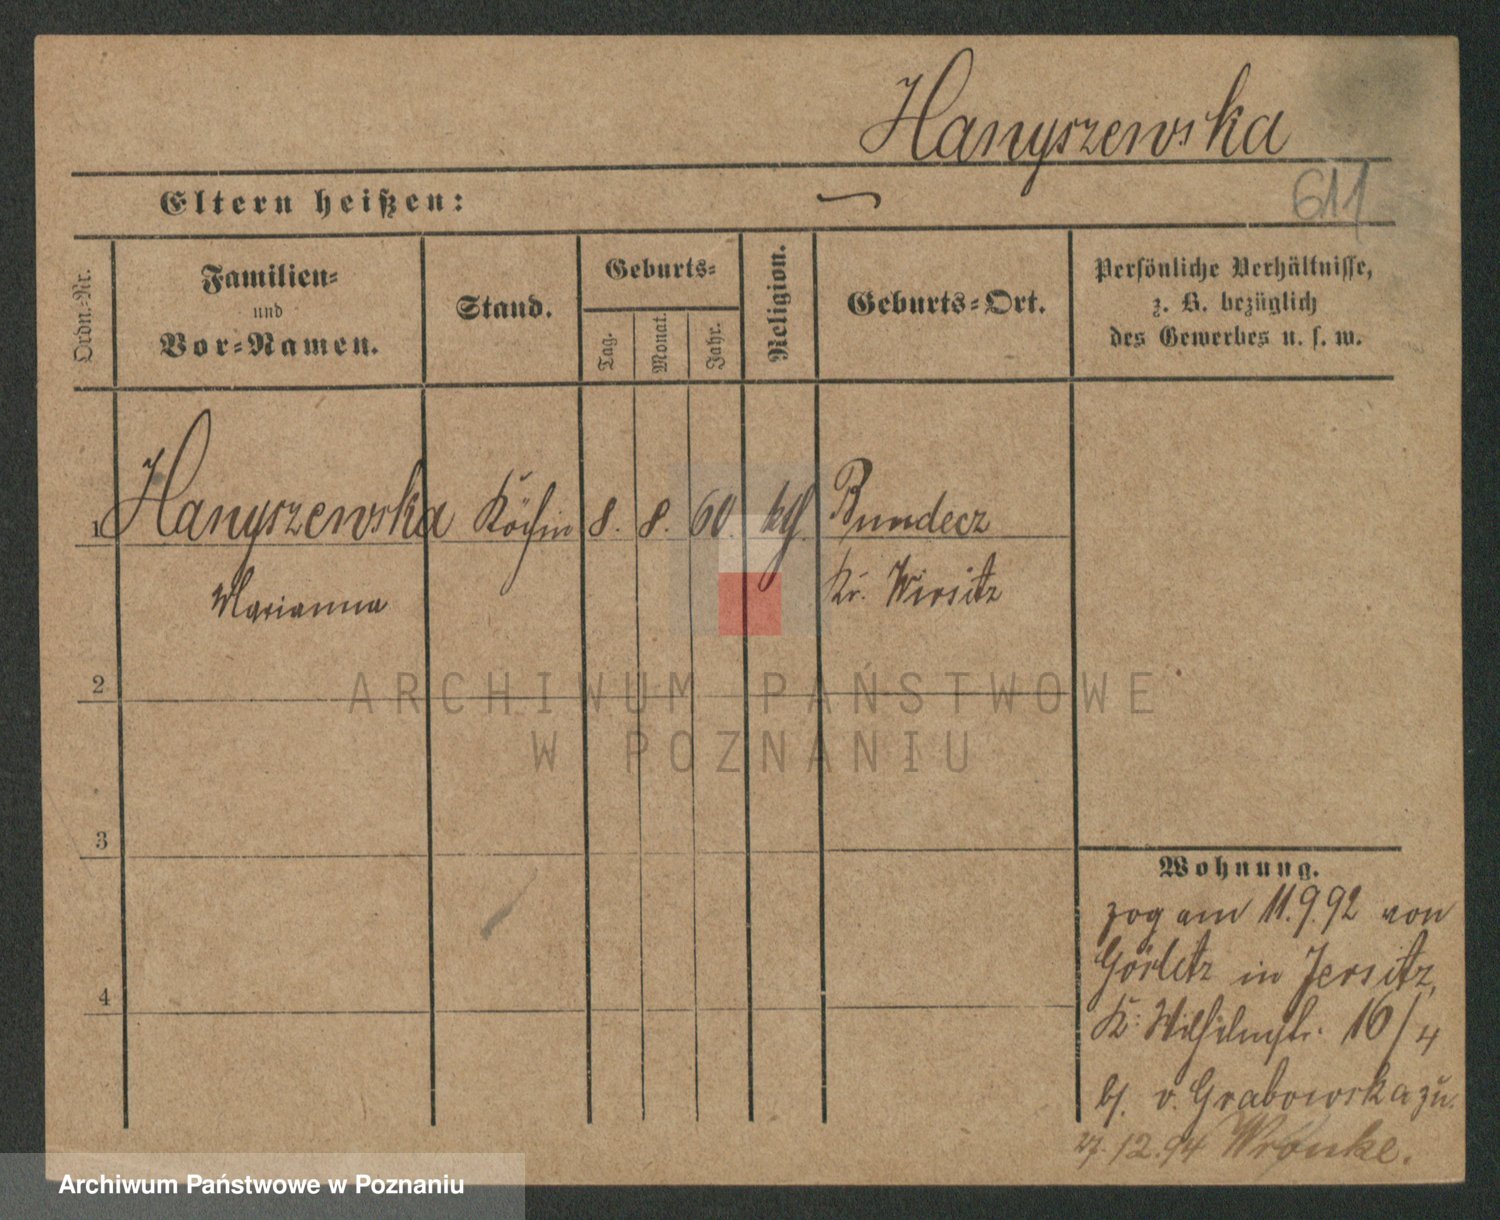 Hanyszewska
611
Eltern heißen:
Ordn.-Nr.
Familien-
und
Vor-Namen.
Stand.
Geburts-
Tag.
Monat.
Jahr.
Religion.
Geburts-Ort.
Persönliche Verhältnisse,
z. B. bezüglich
des Gewerbes u. s. w.
1 Hanyszewska Köchin 8. 8. 60. kth. Rundecz
Marianna Kr. Wirsitz
2
3
4
Wohnung.
zog am 11.9.92 von
Görlitz in Jersitz,
K: Wilhelmstr. 16/4
bj. v. Grabowska zu.
27.12.94 Wronke.
ARCHIWUM PAŃSTWOWE
W POZNANIU
Archiwum Państwowe w Poznaniu